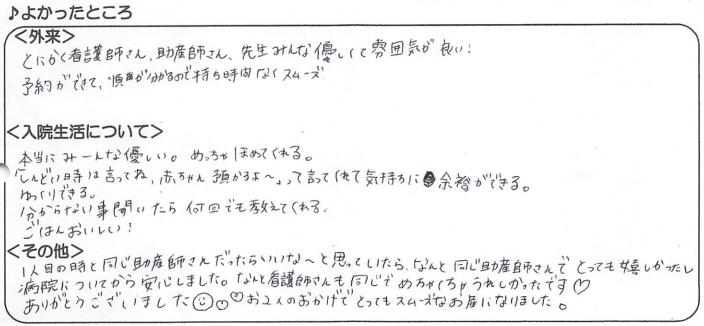 ♪よかったところ
＜外来＞
とにかく看護師さん、助産師さん、先生みんな優しくて雰囲気が良い!
予約ができて、順番が分かるので待ち時間なくスムーズ
＜入院生活について＞
本当にみーんな優しい。めっちゃほめてくれる。
「しんどい時は言ってね、赤ちゃん預かるよ〜」って言ってくれて気持ちに余裕ができる。
ゆっくりできる。
分からない事聞いたら何回でも教えてくれる。
ごはんおいしい!
＜その他＞
1人目の時と同じ助産師さんだったらいいな〜と思っていたら、なんと同じ助産師さんでとっても嬉しかったし
病院についてから安心しました。なんと看護師さんも同じでめちゃくちゃうれしかったです♡
ありがとうございました☺。♡お2人のおかげでとってもスムーズなお産になりました。